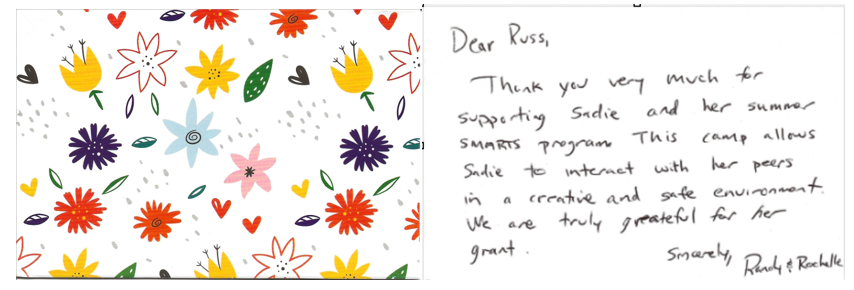 Dear Russ,
Thank you very much for
supporting Sadie and her summer
SMARTS program. This camp allows
Sadie to interact with her peers
in a creative and safe environment.
We are truly greateful for her
grant.
Sincerely,
Randy & Rochelle